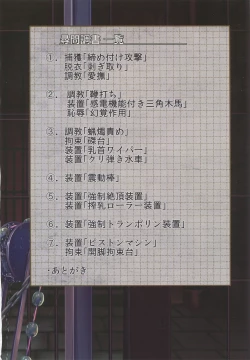 尋問調書一覧
1．捕獲「締め付け攻撃」
脱衣「剥ぎ取り」
調教「愛撫」
2．調教「鞭打ち」
装置「感電機能付き三角木馬」
恥辱「幻覚作用」
3．調教「蝋燭責め」
拘束「磔台」
装置「乳首ワイパー」
装置「クリ弾き水車」
4．装置「震動棒」
5．装置「強制絶頂装置」
装置「搾乳ローラー装置」
6．装置「強制トランポリン装置」
7．装置「ピストンマシン」
拘束「開脚拘束台」
・あとがき